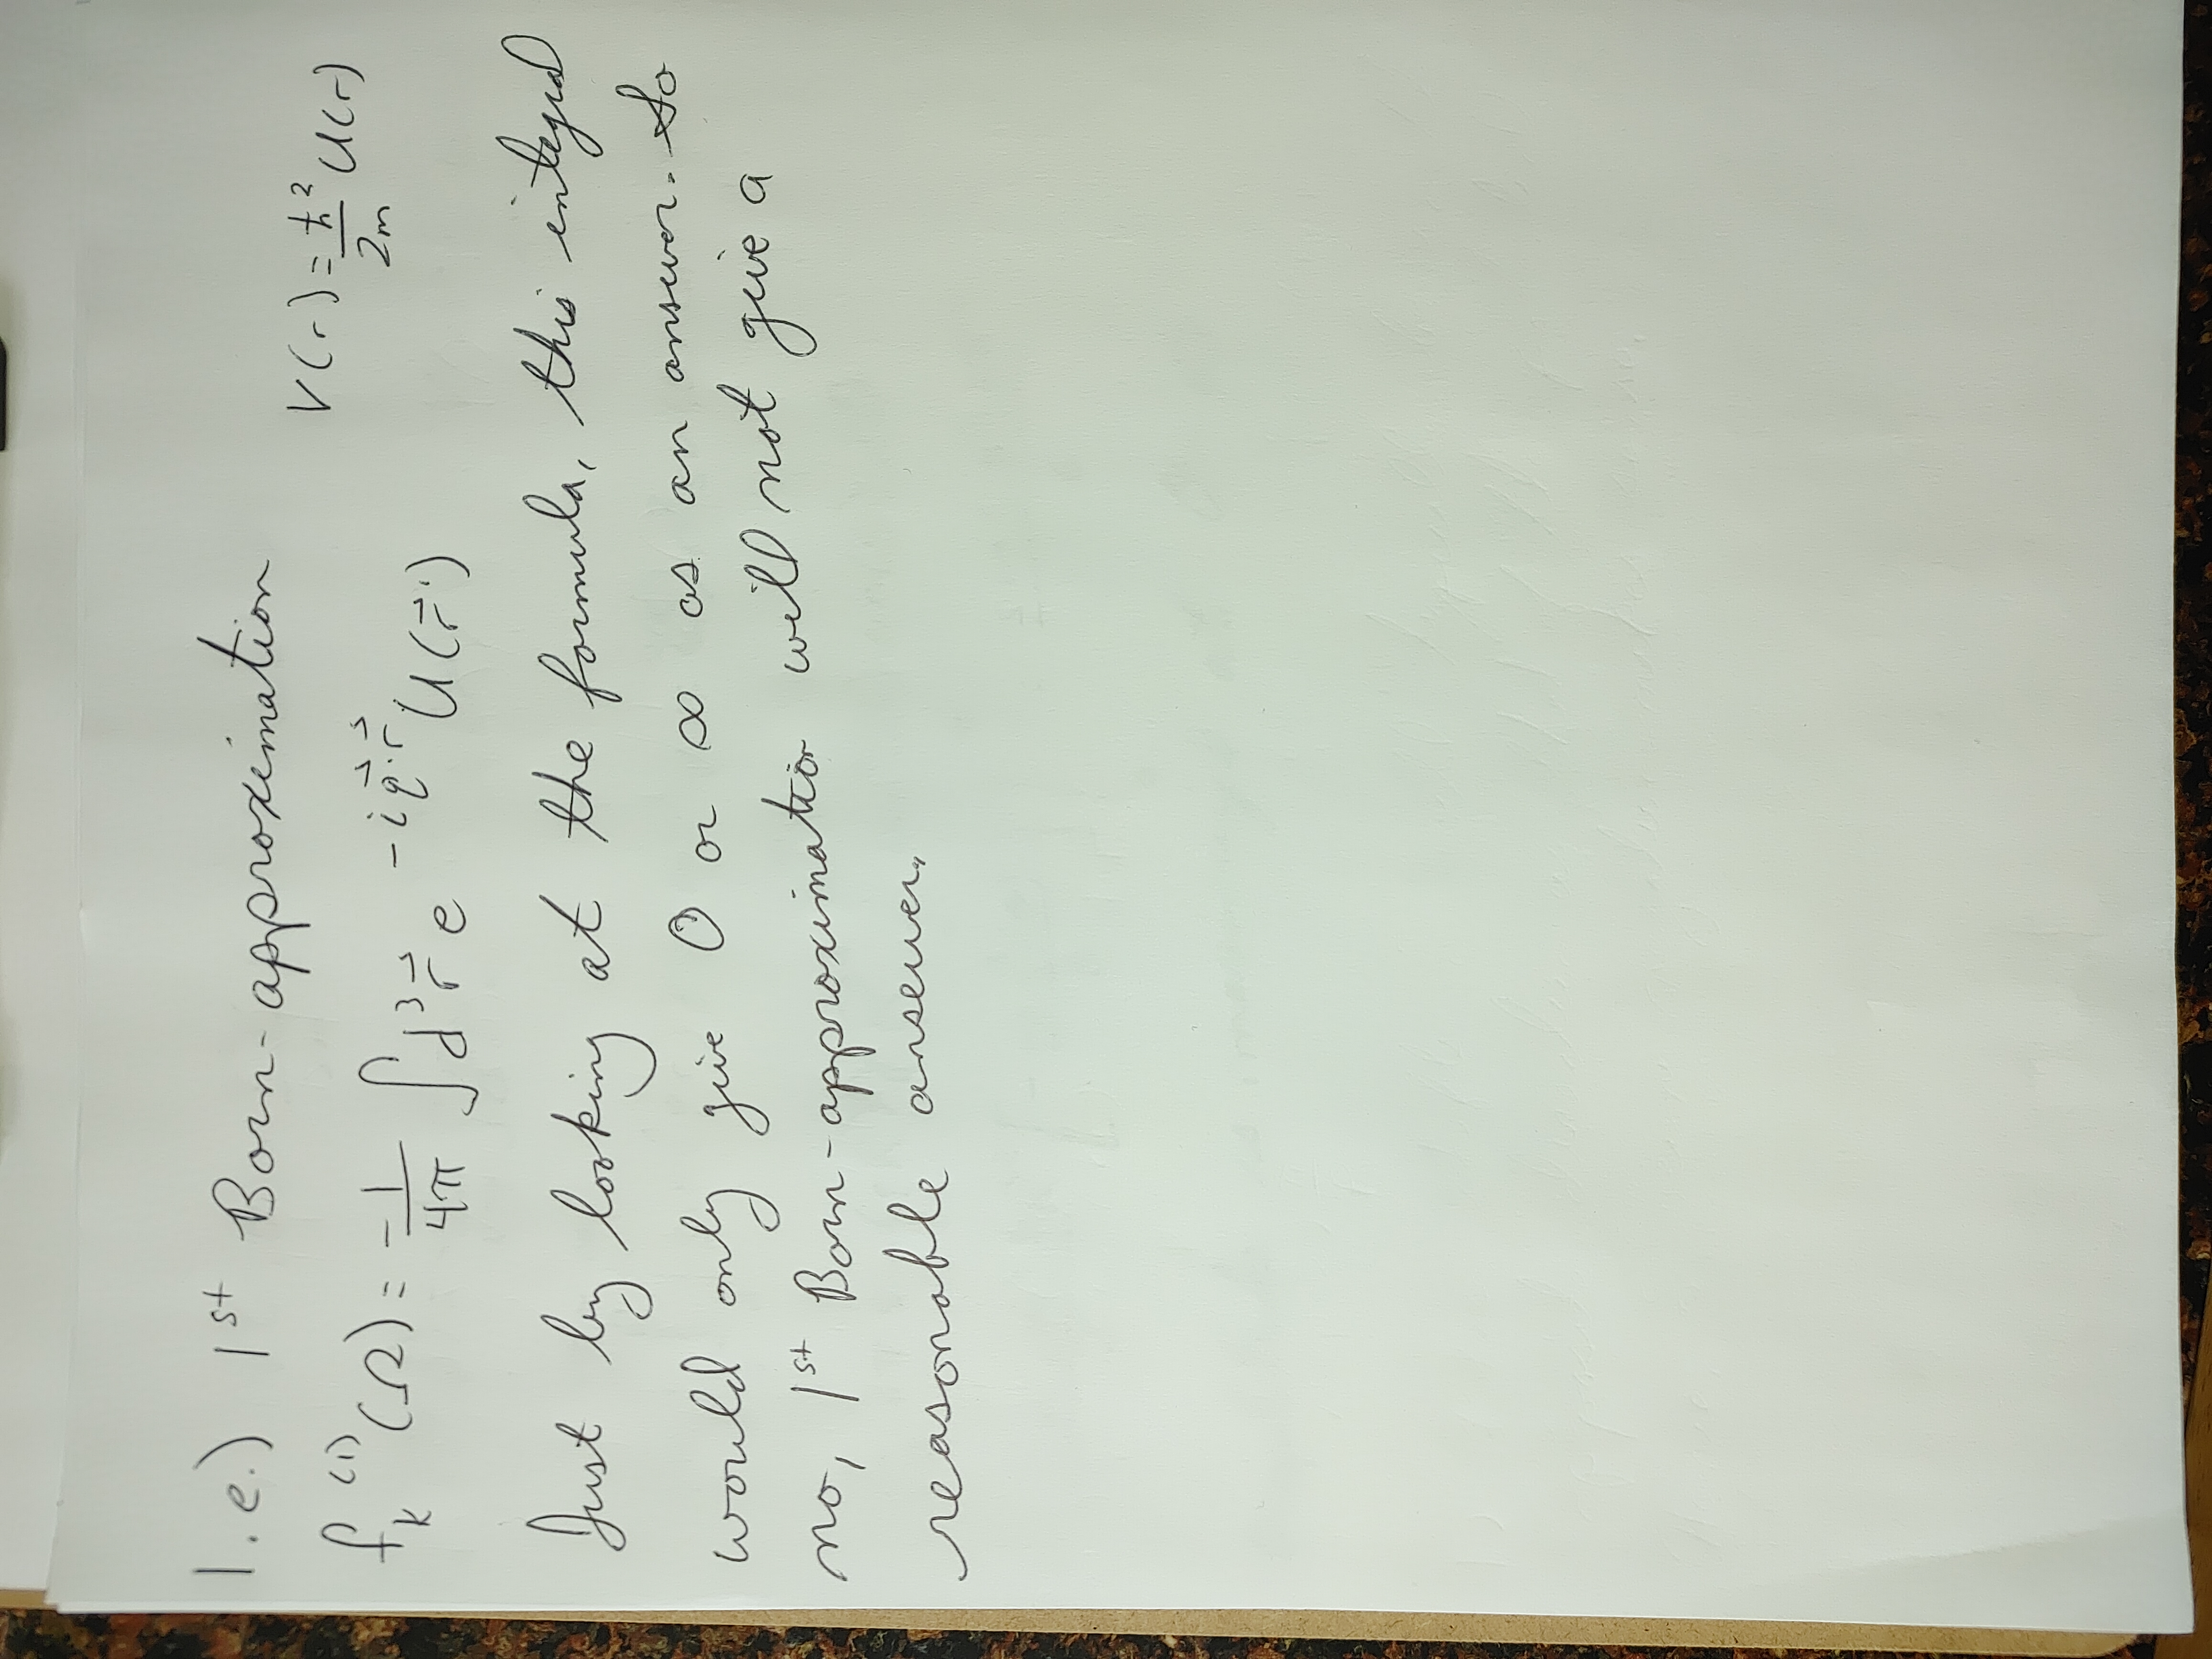 1.e.) 1st Born-approximation
V(r) = ħ²/2m U(r)
fₖ⁽¹⁾(Ω) = -1/4π ∫d³r⃗ e^(-iq⃗·r⃗) U(r⃗')
Just by looking at the formula, this integral
would only give 0 or ∞ as an answer. So
no, 1st Born-approximation will not give a
reasonable answer.